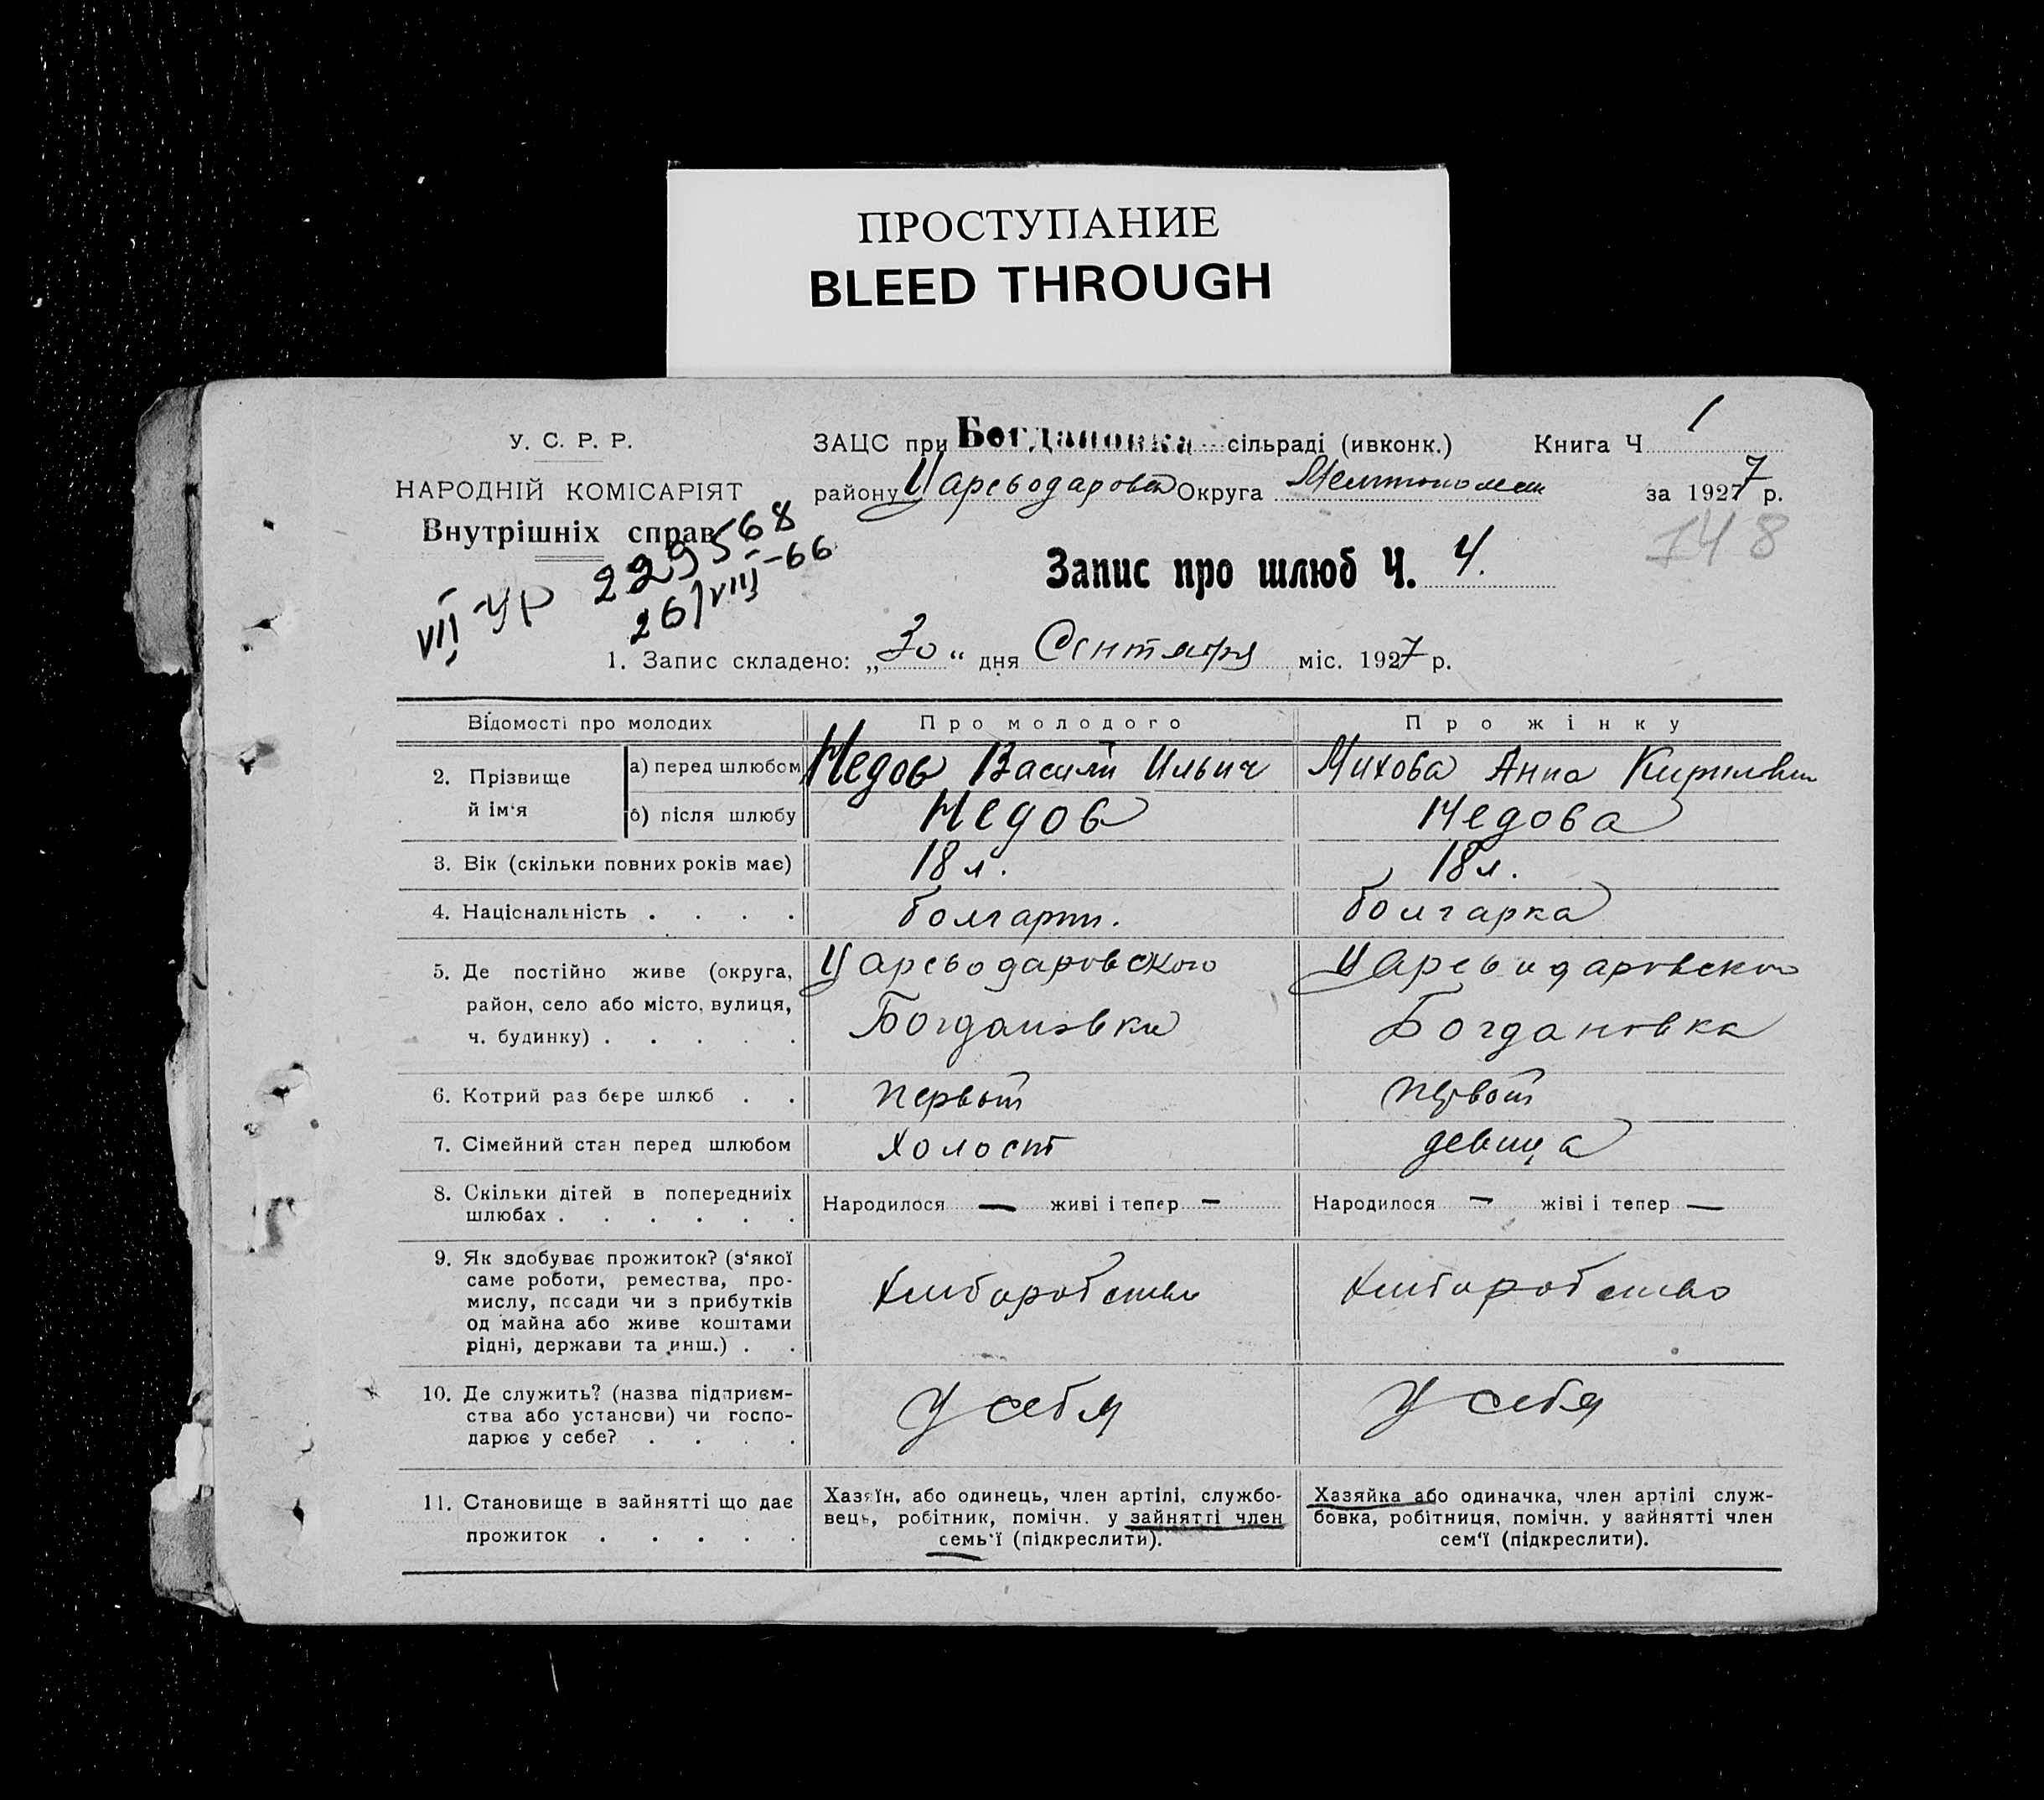 ПРОСТУПАНИЕ
BLEED THROUGH
У. С. Р. Р.
НАРОДНІЙ КОМІСАРІЯТ
Внутрішніх справ
VII-УР 229568
26/VIII-66
ЗАЦС при Богдановка сільраді (ивконк.) Книга Ч 1
району Царсводаровск Округа за 1927 р.
148
Запис про шлюб Ч. 4.
1. Запис складено: „30“ дня Сентября міс. 1927 р.
Відомості про молодих Про молодого Про жінку
2. Прізвище й ім'я
а) перед шлюбом Недов Василй Ильич Михова Анна
б) після шлюбу Недов Недова
3. Вік (скільки повних років має) 18 л. 18 л.
4. Національність . . . . болгарин. болгарка
5. Де постійно живе (округа, Царсводаровского Царсводаровского
район, село або місто, вулиця, Богдановка Богдановка
ч. будинку) . . . . .
6. Котрий раз бере шлюб . . первый первый
7. Сімейний стан перед шлюбом холост девица
8. Скільки дітей в попередниіх Народилося — живі і тепер — Народилося — жіві і тепер —
шлюбах . . . . . .
9. Як здобуває прожиток? (з'якої
саме роботи, ремества, про-
мислу, посади чи з прибутків Хлиборобство Хлиборобство
од майна або живе коштами
рідні, держави та инш.) . .
10. Де служить? (назва підприєм-
ства або установи) чи госпо- У себя У себя
дарює у себе? . . . .
11. Становище в зайнятті що дає
прожиток . . . . .
Хазяїн, або одинець, член артілі, службо-
вець, робітник, помічн. у зайнятті член
семь'ї (підкреслити).
Хазяйка або одиначка, член артілі служ-
бовка, робітниця, помічн. у зайнятті член
сем'ї (підкреслити).